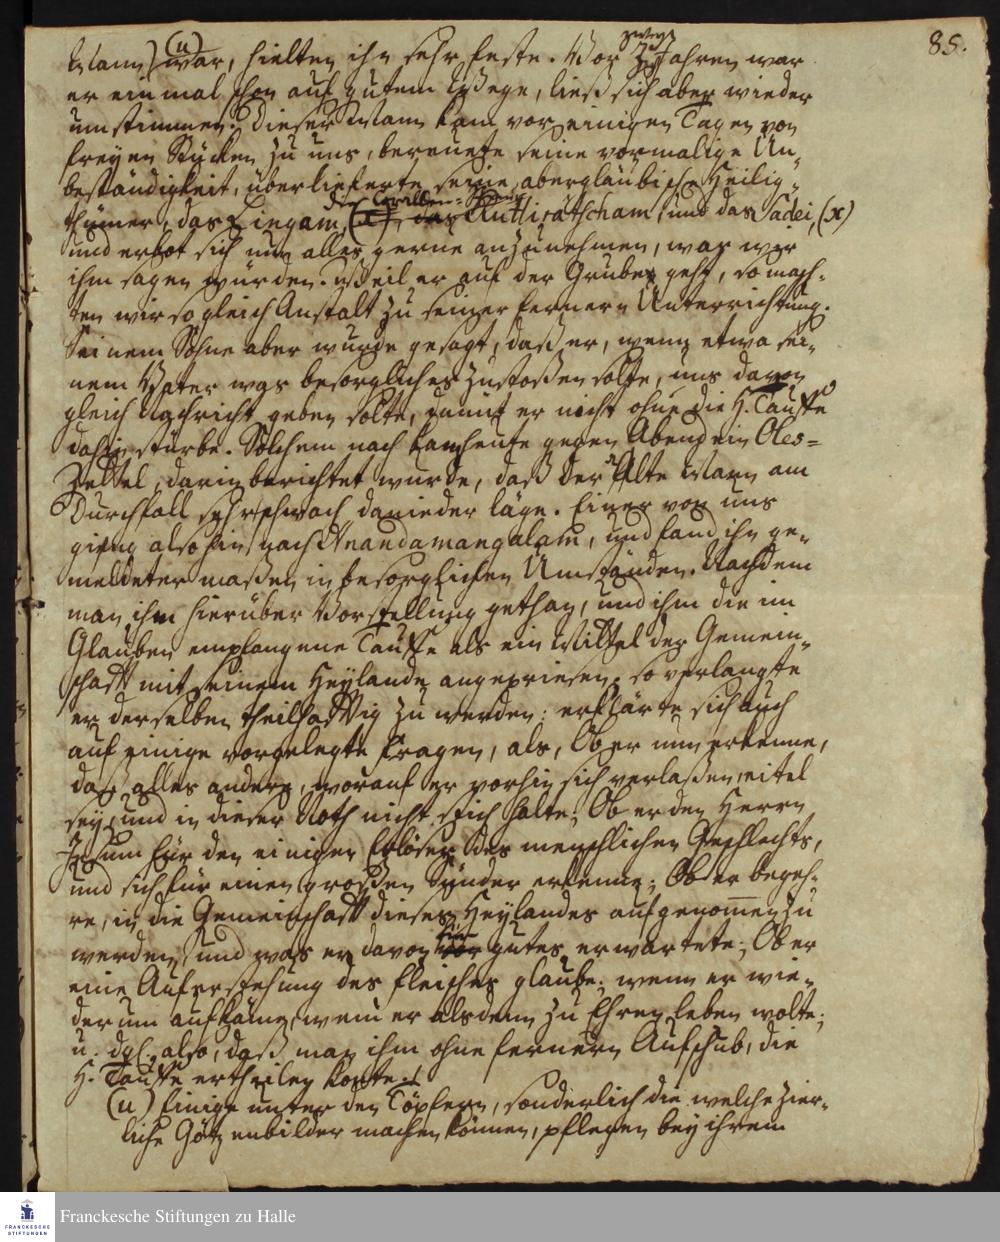 85.
Mann) (u) war, hielten ihn sehr feste. Vor zwey Jahren war
er einmal schon auf gutem Wege, ließ sich aber wieder
umstimmen. Dieser Mann kam vor einigen Tagen von
freyen Stücken zu uns, bereuete seine vormalige Un-
beständigkeit, überlieferte seine abergläubische Heilig-
thümer, das Lingam, die Corallen-Schnur Ruttirätscham, und das Sadei, (x)
und erbot sich nun alles gerne anzunehmen, was wir
ihm sagen würden. Weil er auf der Gruben geht, so mach-
ten wir sogleich Anstalt zu seiner fernern Unterrichtung.
Seinem Sohne aber wurde gesagt, daß er, wenn etwa sei-
nem Vater was besorgliches zustoßen solte, uns davon
gleich Nachricht geben solte, damit er nicht ohne die H. Tauffe
dahin stürbe. Solchem nach kam heute gegen Abend ein Oles-
Zettel, darin berichtet wurde, daß der alte Mann am
Durchfall sehr schwach danieder läge. Einer von uns
gieng also hin nach Anandamangalam, und fand ihn ge-
meldeter maßen in besorglichen Umständen. Nachdem
man ihm hierüber Vorstellung gethan, und ihm die im
Glauben empfangene Tauffe als ein Mittel der Gemein-
schafft mit seinem Heylande angepriesen; so verlangte
er derselben theilhafftig zu werden: erklärte sich auch
auf einige vorgelegte Fragen, als, Ob er nun erkenne,
daß alles andere, worauf er vorhin sich verlaßen, eitel
sey, und in dieser Noth nicht stich halte; Ob er den Herrn
Jesum für den einigen Erlöser des menschlichen Geschlechts,
und sich für einen großen Sünder erkenne; Ob er begeh-
re, in die Gemeinschafft dieses Heylandes aufgenommen zu
werden, und was er davon für gutes erwartete; Ob er
eine Auferstehung des Fleisches glaube; wenn er wie-
derum aufkäme, wem er alsdenn zu Ehren leben wolte;
u. dgl. also, daß man ihm ohne fernern Aufschub, die
H. Tauffe ertheilen konte.
(u) Einige unter den Töpfern, sonderlich die welche zier-
liche Götzenbilder machen können, pflegen bey ihrem
Franckesche Stiftungen zu Halle
FRANCKESCHE
STIFTUNGEN